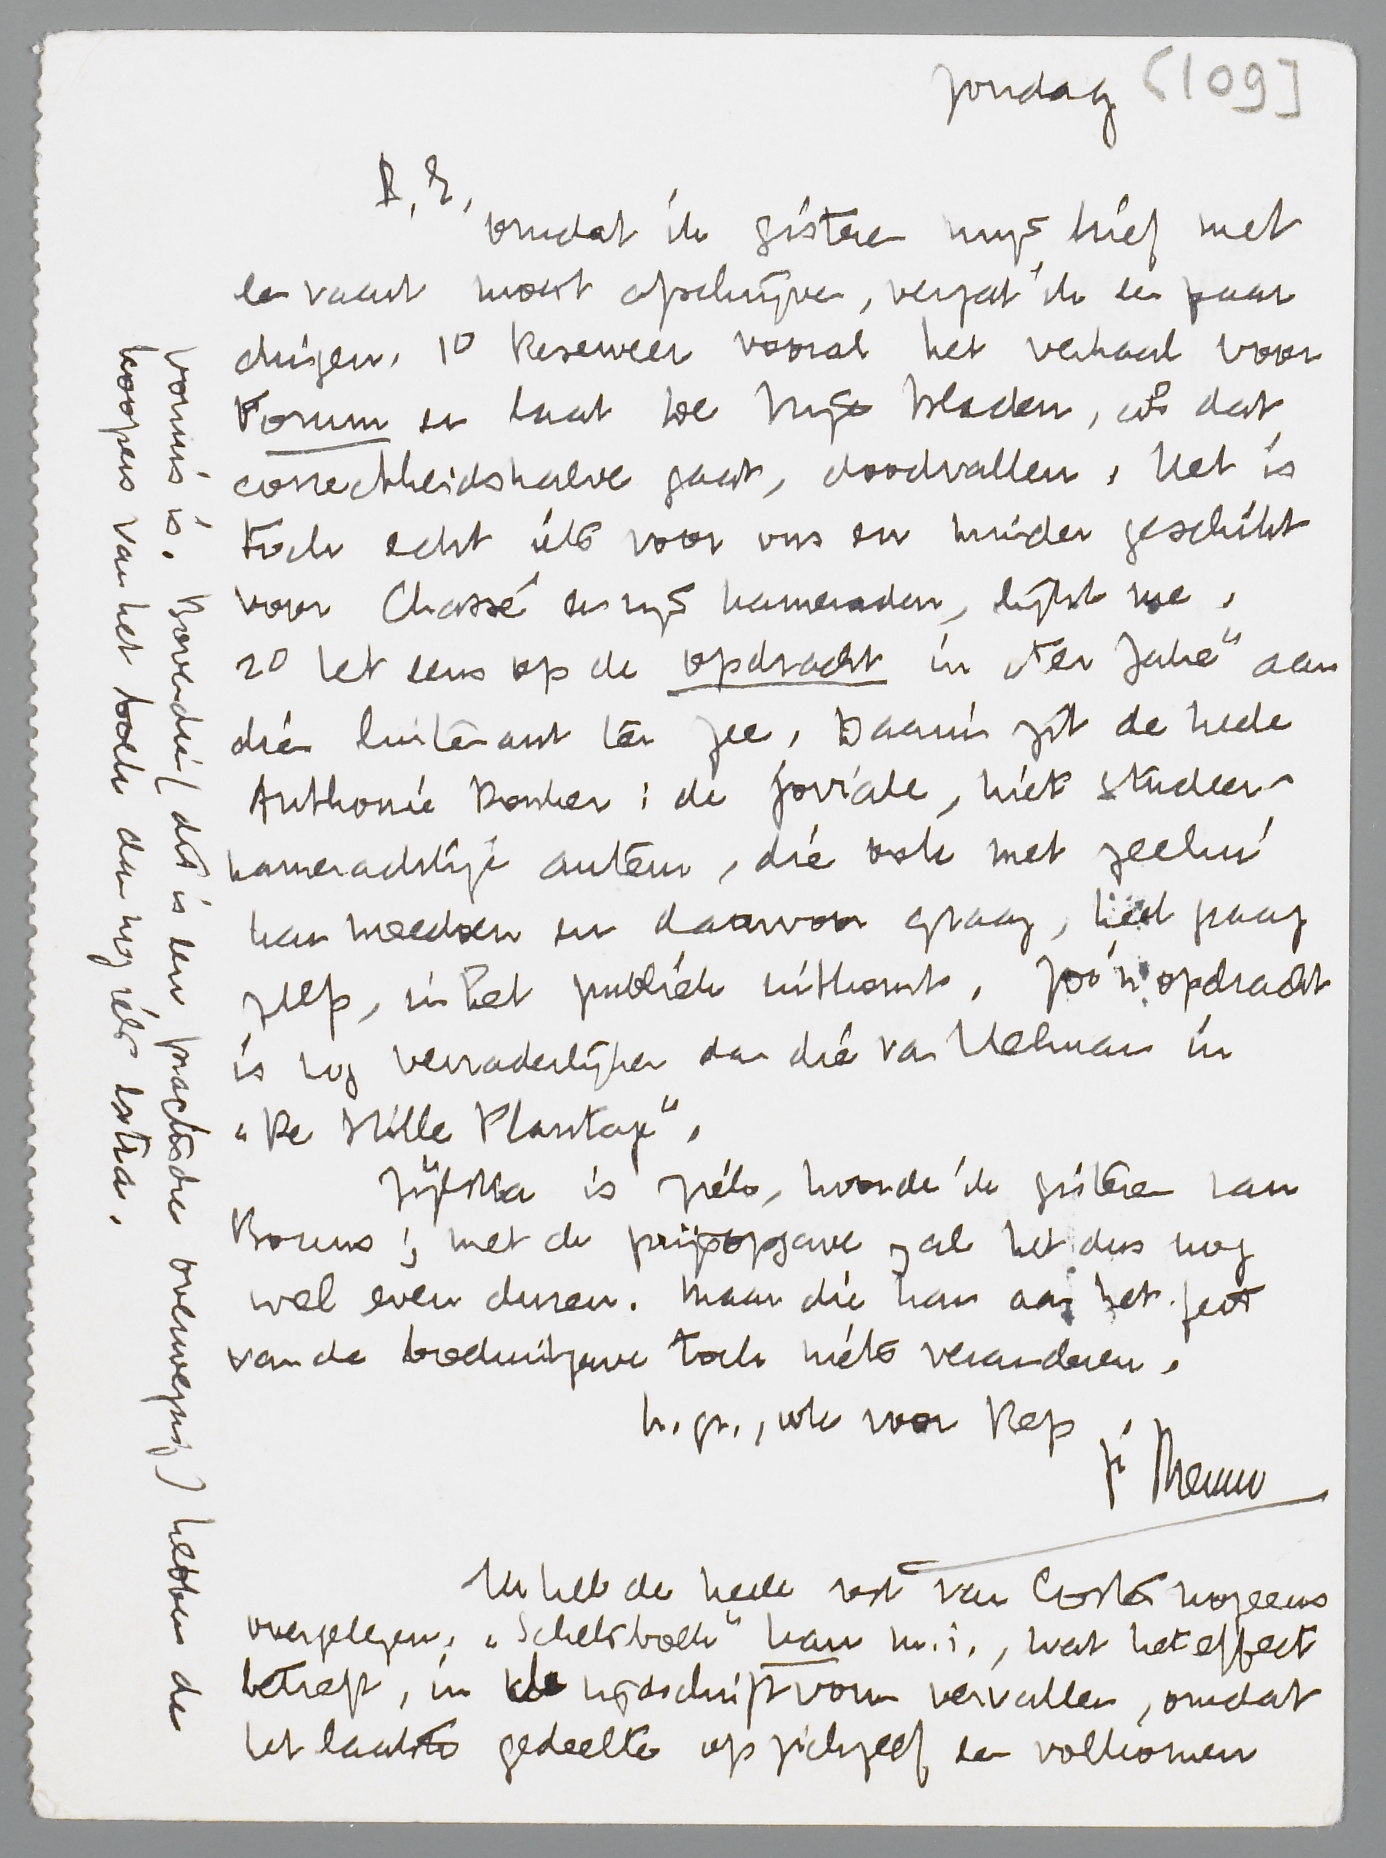 zondag [109]
B. E.,
omdat ik gisteren mijn brief met
een vaart moest afschrijven, vergat ik een paar
dingen. 1° Reserveer vooral het verhaal voor
Forum en laat de Vrije Bladen, als dat
correctheidshalve gaat, doodvallen. Het is
toch echt iets voor ons en minder geschikt
voor Chassé en zijn kameraden, lijkt me.
2° let eens op de opdracht in „Ter Zake" aan
die luitenant ter zee. Daarin zit de heele
Anthonie Donker: de joviale, niet studeer-
kamerachtige auteur, die ook met zeelui
kan meedoen en daarvoor graag, heel graag
zelf, in het publiek uitkomt. Zoo'n opdracht
is nog verraderlijker dan die van Helman in
„De Stille Plantage".
Zijlstra is ziek, hoorde ik gisteren van
Bouws; met de prijsopgave zal het dus nog
wel even duren. Maar die kan aan het feit
van de boekuitgave toch niets veranderen.
h. gr., ook voor Bep
je Menno
Ik heb de heele rest van Coster nog eens
overgelezen. „Schetsboek" kan m.i., wat het effect
betreft, in de tijdschriftvorm vervallen, omdat
het laatste gedeelte op zichzelf een volkomen
vonnis is. Bovendien (dit is een practische overweging) hebben de
koopers van het boek dan nog iets extra.